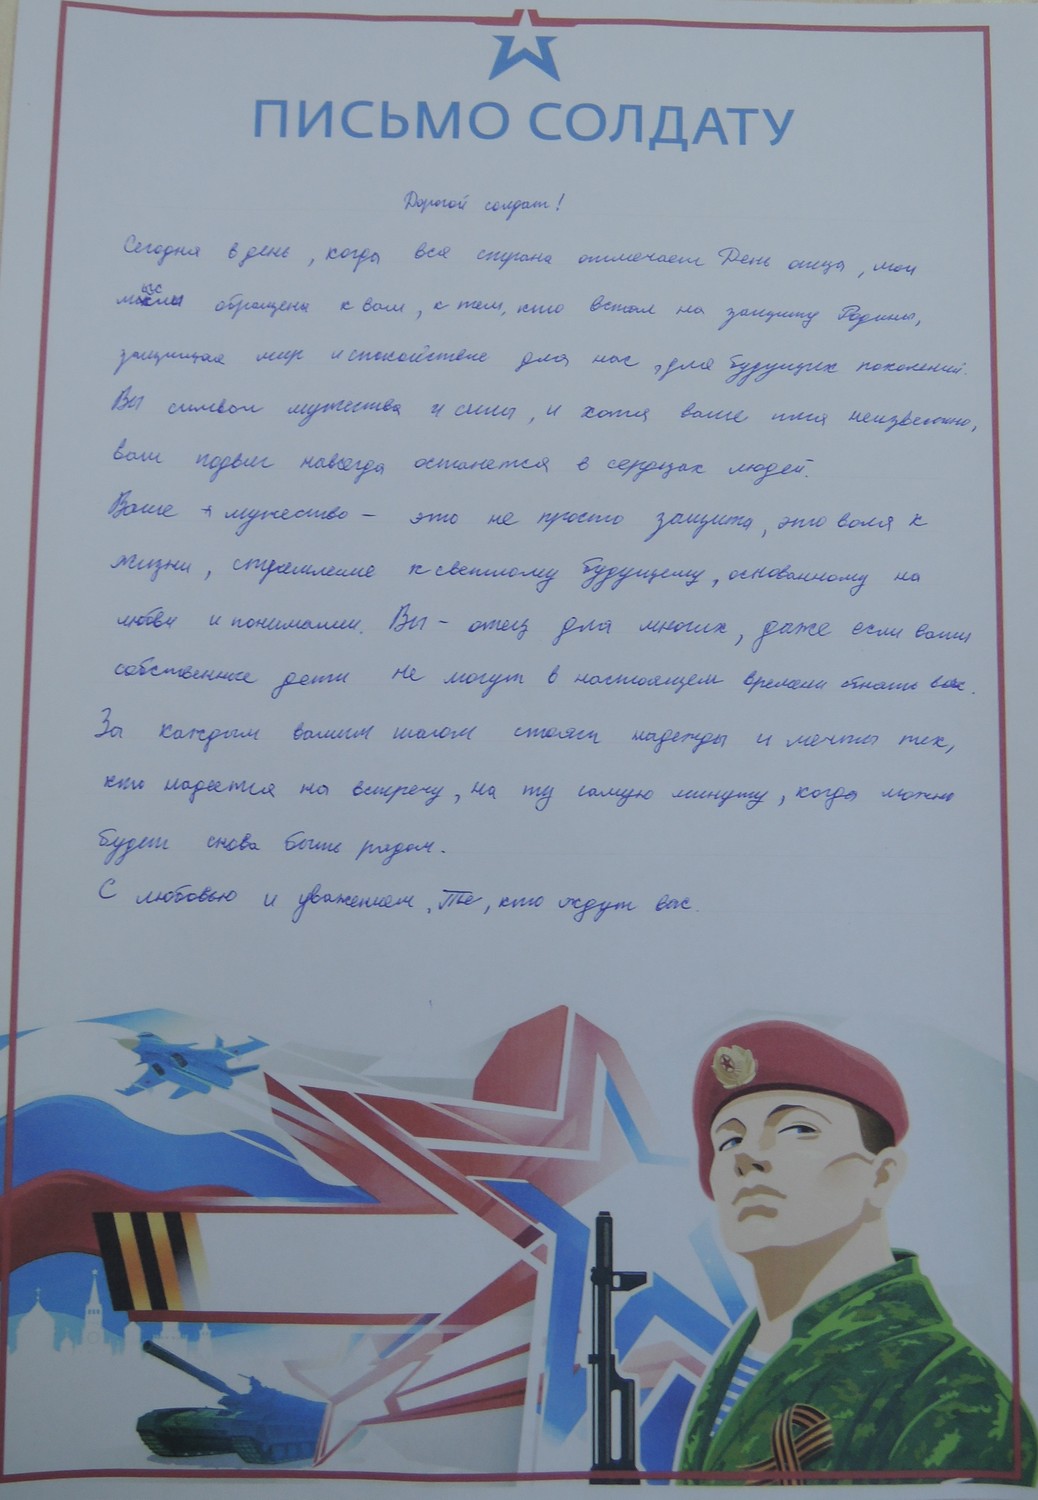 ПИСЬМО СОЛДАТУ
Дорогой солдат!
Сегодня в день, когда вся страна отмечает День отца, мои
мысли обращена к вам, к тем, кто встал на защиту Родины,
защищая мир и спокойствие для нас, для будущих поколений.
Вы символ мужества и силы, и хотя ваше имя неизвестно,
ваш подвиг навсегда останется в сердцах людей.
Ваше мужество - это не просто защита, это воля к
жизни, стремление к светлому будущему, основанному на
любви и понимании. Вы - отец для многих, даже если ваши
собственные дети не могут в настоящем времени обнять вас.
За каждым вашим шагом стоят надежды и мечты тех,
кто надеется на встречу, на ту самую минуту, когда можно
будет снова быть рядом.
С любовью и уважением, Те, кто ждут вас.